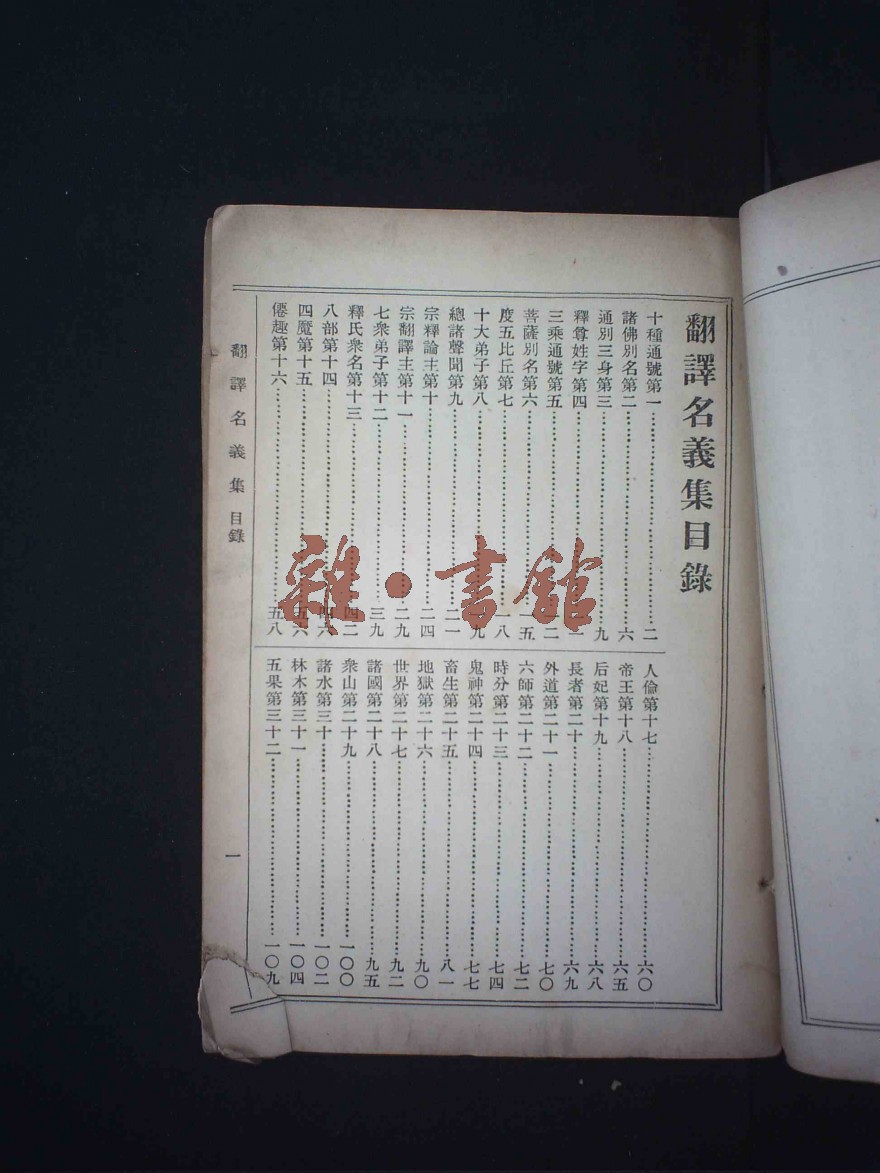 翻譯名義集目錄
十種通號第一……二
諸佛別名第二……六
通別三身第三……九
釋尊姓字第四……
三乘通號第五……
菩薩別名第六……一五
度五比丘第七……一八
十大弟子第八……
總諸聲聞第九……二一
宗釋論主第十……二四
宗翻譯主第十一……二九
七衆弟子第十二……三九
釋氏衆名第十三……四二
八部第十四……四六
四魔第十五……五六
僊趣第十六……五八
人倫第十七……六〇
帝王第十八……六五
后妃第十九……六八
長者第二十……六九
外道第二十一……七〇
六師第二十二……七二
時分第二十三……七四
鬼神第二十四……七七
畜生第二十五……八一
地獄第二十六……九〇
世界第二十七……九二
諸國第二十八……九五
衆山第二十九……一〇〇
諸水第三十……一〇二
林木第三十一……一〇四
五果第三十二……一〇九
翻譯名義集 目錄
一
雜·書館